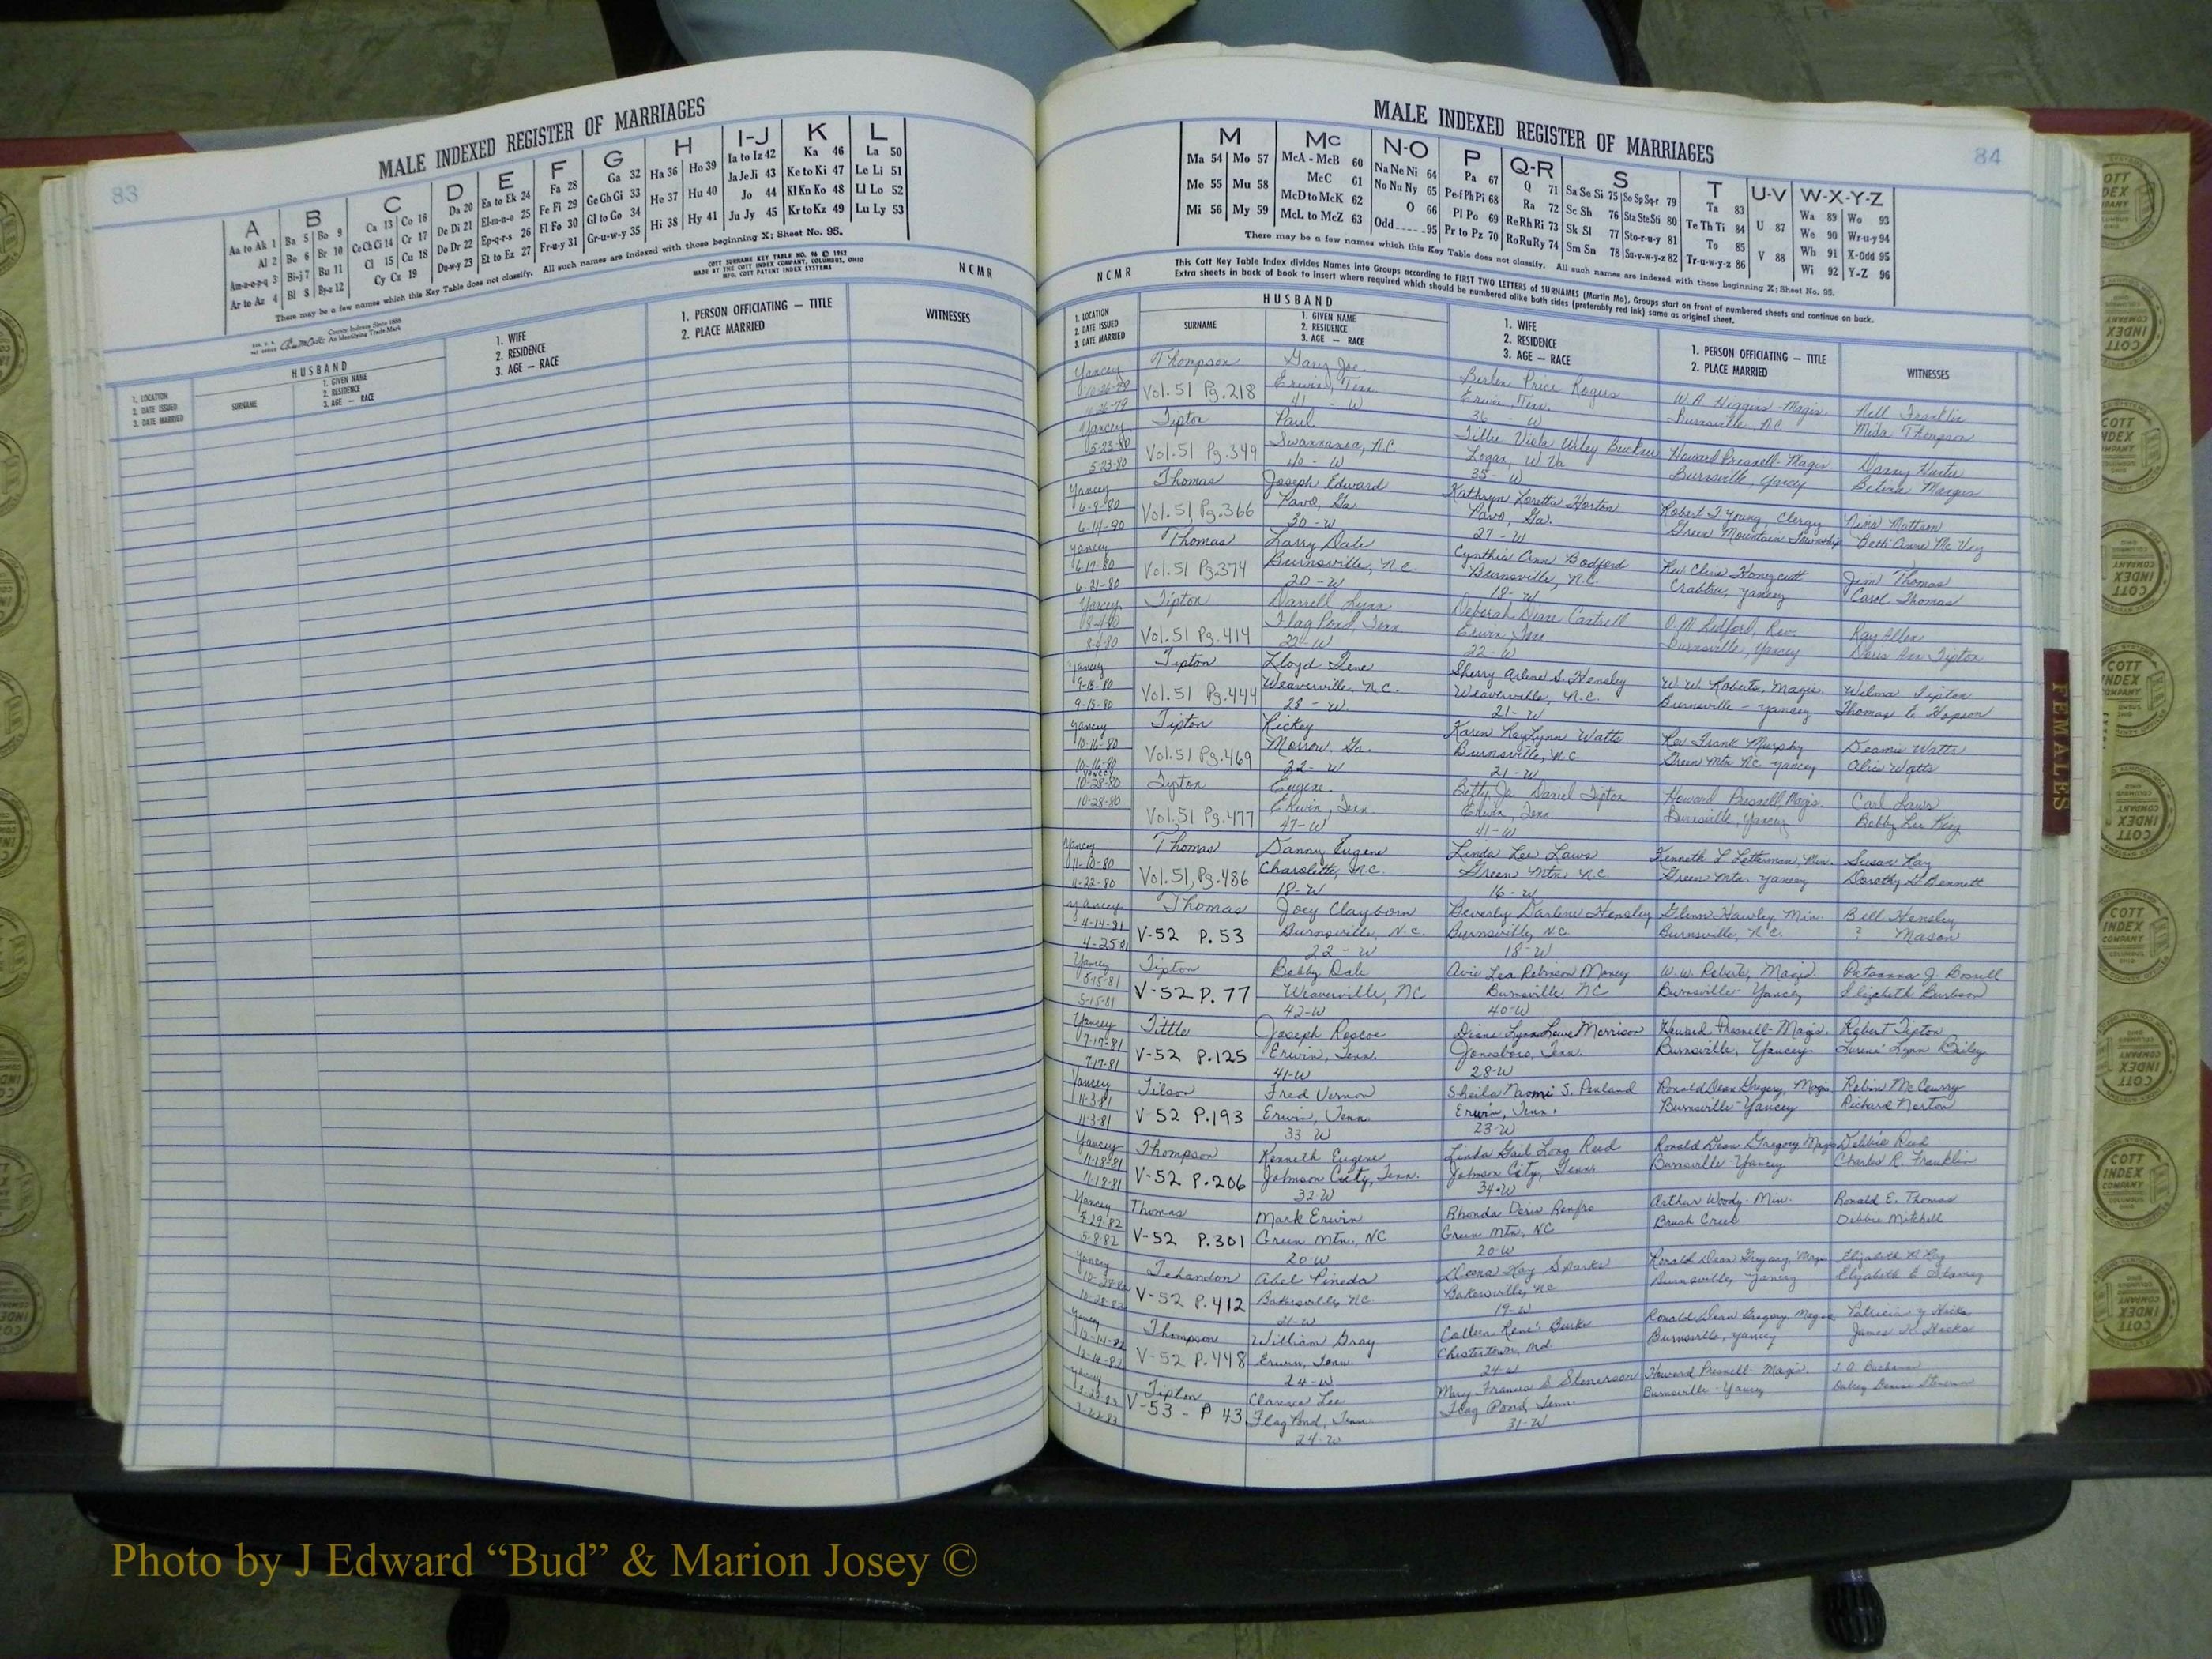 MALE INDEXED REGISTER OF MARRIAGES
83
A B C D E F G H I-J K L
Aa to Ak 1 Ba 5 Bo 9 Ca 13 Co 16 Da 20 Ea to Ek 24 Fa 28 Ga 32 Ha 36 Ho 39 Ia to Iz 42 Ka 46 La 50
Al 2 Be 6 Br 10 Ce Ch Ci 14 Cr 17 De Di 21 El-m-n-o 25 Fe Fi 29 Ge Gh Gi 33 He 37 Hu 40 Ja Je Ji 43 Ke to Ki 47 Le Li 51
Am-n-o-p-q 3 Bi-j 7 Bu 11 Cl 15 Cu 18 Do Dr 22 Ep-q-r-s 26 Fl Fo 30 Gl to Go 34 Hi 38 Hy 41 Jo 44 Kl Kn Ko 48 Ll Lo 52
Ar to Az 4 Bl 8 By-z 12 Cy Cz 19 Du-w-y 23 Et to Ez 27 Fr-u-y 31 Gr-u-w-y 35 Ju Jy 45 Kr to Kz 49 Lu Ly 53
There may be a few names which this Key Table does not classify. All such names are indexed with those beginning X; Sheet No. 95.
COTT SURNAME KEY TABLE NO. 96 © 1952
MADE BY THE COTT INDEX COMPANY, COLUMBUS, OHIO
MFG. COTT PATENT INDEX SYSTEMS
NCMR
County Indexes Since 1888
An Identifying Trade Mark
HUSBAND
1. LOCATION
2. DATE ISSUED
3. DATE MARRIED
SURNAME
1. GIVEN NAME
2. RESIDENCE
3. AGE — RACE
1. WIFE
2. RESIDENCE
3. AGE — RACE
1. PERSON OFFICIATING — TITLE
2. PLACE MARRIED
WITNESSES
MALE INDEXED REGISTER OF MARRIAGES
84
M Mc N-O P Q-R S T U-V W-X-Y-Z
Ma 54 Mo 57 McA - McB 60 Na Ne Ni 64 Pa 67 Q 71 Sa Se Si 75 So Sp Sq-r 79 Ta 83 U 87 Wa 89 Wo 93
Me 55 Mu 58 McC 61 No Nu Ny 65 Pe-f Ph Pi 68 Ra 72 Sc Sh 76 Sta Ste Sti 80 Te Th Ti 84 We 90 Wr-u-y 94
Mi 56 My 59 McD to McK 62 O 66 Pl Po 69 Re Rh Ri 73 Sk Sl 77 Sto-r-u-y 81 To 85 V 88 Wh 91 X-Odd 95
McL to McZ 63 Odd 95 Pr to Pz 70 Ro Ru Ry 74 Sm Sn 78 Su-v-w-y-z 82 Tr-u-w-y-z 86 Wi 92 Y-Z 96
There may be a few names which this Key Table does not classify. All such names are indexed with those beginning X; Sheet No. 95.
NCMR
This Cott Key Table Index divides Names into Groups according to FIRST TWO LETTERS of SURNAMES (Martin Ma). Groups start on front of numbered sheets and continue on back.
Extra sheets in back of book to insert where required which should be numbered alike both sides (preferably red ink) same as original sheet.
HUSBAND
1. LOCATION
2. DATE ISSUED
3. DATE MARRIED
SURNAME
1. GIVEN NAME
2. RESIDENCE
3. AGE — RACE
1. WIFE
2. RESIDENCE
3. AGE — RACE
1. PERSON OFFICIATING — TITLE
2. PLACE MARRIED
WITNESSES
Yancey Thompson Gary Joe Price Rogers W.A. Higgins - Magis. Nell Franklin
10-26-79 Vol. 51 Pg. 218 Erwin, Tenn. Erwin, Tenn. Burnsville, N.C. Thompson
41 - W 36 - W
Yancey Tipton Paul Tillie Viola Wiley Howard Presnell - Magis.
5-23-80 Vol. 51 Pg. 349 Swannanoa, N.C. Logan, W. Va. Burnsville, Yancey
5-23-80 40 - W 35 - W
Yancey Thomas Joseph Edward Kathryn Loretta Horton Robert T Young, Clergy Nina Mattson
6-9-80 Vol. 51 Pg. 366 Pavo, Ga. Pavo, Ga. Green Mountain Township Beth Anne McVey
6-14-80 30 - W 27 - W
Yancey Thomas Larry Dale Cynthia Ann Rev. Honeycutt Jim Thomas
6-17-80 Vol. 51 Pg. 374 Burnsville, N.C. Burnsville, N.C. Crabtree, Yancey Carol Thomas
6-21-80 20 - W 18 - W
Yancey Tipton Darrell Lynn Deborah Diane O.M. Ledford, Rev. Ray Allen
8-4-80 Vol. 51 Pg. 414 Flag Pond, Tenn. Erwin, Tenn. Burnsville, Yancey Doris Ann Tipton
22 - W 22 - W
Yancey Tipton Lloyd Gene Sherry Arlene S. Hensley W.W. Roberts, Magis. Wilma Tipton
9-15-80 Vol. 51 Pg. 444 Weaverville, N.C. Weaverville, N.C. Burnsville - Yancey Thomas E Hopson
9-15-80 28 - W. 21 - W
Yancey Tipton Rickey Karen KayLynn Watts Rev Frank Murphy Watts
10-16-80 Vol. 51 Pg. 469 Morrow, Ga. Burnsville, N.C. Green Mtn NC Yancey Alice Watts
10-16-80 22 - W 21 - W
Yancey
10-28-80 Tipton Eugene Betty Jo Daniel Tipton Howard Presnell, Magis. Carl Laws
10-28-80 Vol. 51 Pg. 477 Erwin, Tenn. Erwin, Tenn. Burnsville, Yancey Bobby Lee King
47 - W 41 - W
Yancey Thomas Danny Eugene Linda Lee Laws Kenneth L Letterman, Min. Susan Ray
11-10-80 Vol. 51, Pg. 486 Charolette, N.C. Green Mtn N.C. Green Mtn. Yancey Dorothy G Bennett
11-22-80 18 - W 16 - W
Yancey Thomas Joey Clayborn Beverly Darlene Hensley Glenn Hawley, Min. Bill Hensley
4-14-81 V-52 P. 53 Burnsville, N.C. Burnsville, N.C. Burnsville, N.C. ? Mason
4-25-81 22 - W 18 - W
Yancey Tipton Bobby Dale Avie Lea Robinson Maney W.W. Roberts, Magis.
5-15-81 V-52 P. 77 Weaverville, NC Burnsville, NC Burnsville - Yancey Elizabeth
5-15-81 42-W 40-W
Yancey Tittle Joseph Roscoe Lynn Lowe Morrison Howard Presnell - Magis. Robert Tipton
7-17-81 V-52 P. 125 Erwin, Tenn. Jonesboro, Tenn. Burnsville, Yancey Lynn Bailey
7-17-81 41-W 28-W
Yancey Tilson Fred Vernon Sheila Naomi S. Penland Ronald Dean Gregory, Magis Robin McCourry
11-3-81 V-52 P. 193 Erwin, Tenn. Erwin, Tenn. Burnsville - Yancey Richard Norton
11-3-81 33 W 23-W
Yancey Thompson Kenneth Eugene Linda Gail Long Reed Ronald Dean Gregory, Magis Debbie Reed
11-18-81 V-52 P. 206 Johnson City, Tenn. Johnson City, Tenn Burnsville - Yancey Charles R. Franklin
11-18-81 32-W 34-W
Yancey Thomas Mark Erwin Rhonda Doris Renfro Arthur Woody - Min. Ronald E. Thomas
4-29-82 V-52 P. 301 Green Mtn., NC Green Mtn, NC Brush Creek Debbie Mitchell
5-8-82 20 W 20-W
Yancey Tehandon Abel Pineda Kay Sparks Ronald Dean Gregory, Magis Elizabeth
10-28-82 V-52 P. 412 Bakersville, NC Bakersville, NC Burnsville, Yancey Elizabeth E
10-28-82 21-W 19-W
Yancey Thompson William Gray Colleen René Burke Ronald Dean Gregory, Magis. Patricia Y Hicks
12-14-82 V-52 P. 448 Erwin, Tenn. Chestertown, Md. Burnsville, Yancey James Hicks
12-14-82 24-W 24-W
Yancey Tipton Clarence Lee Mary Frances S Howard Presnell - Magis.
V-53 - P 43 Flag Pond, Tenn. Flag Pond, Tenn. Burnsville - Yancey
24-W 31-W
FEMALES
COTT INDEX COMPANY OHIO
Photo by J Edward “Bud” & Marion Josey ©